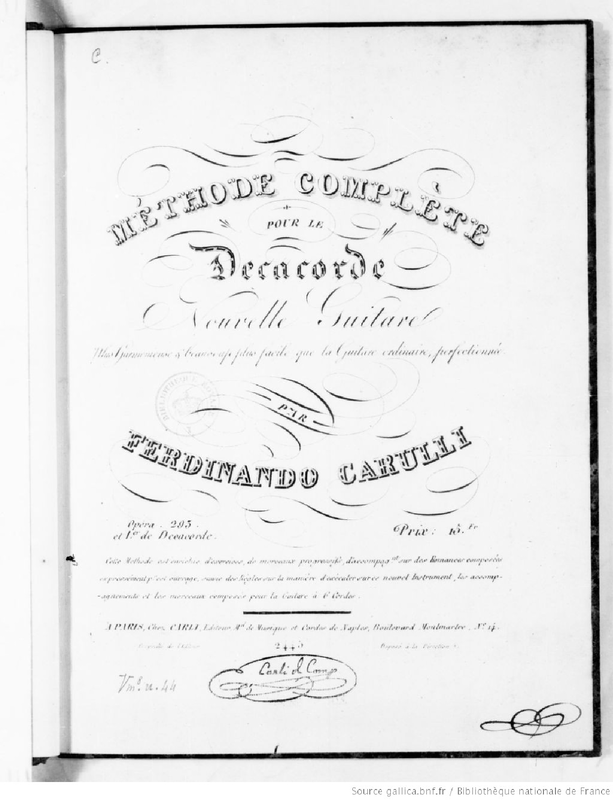 C.
MÉTHODE COMPLÈTE
POUR LE
Décacorde
Nouvelle Guitare
Plus Harmonieuse & beaucoup plus facile que la Guitare ordinaire, perfectionnée
PAR
FERDINANDO CARULLI
Opera . 293 . Prix : 15.Fr
et 1.er de Décacorde.
Cette Méthode est enrichie d'exercices, de morceaux progressifs, d'accompag.nts sur des Romances composées
expressément p.r cet ouvrage, suivie des Règles sur la manière d'exécuter sur ce nouvel Instrument, les accomp-
-agnements et les morceaux composés pour la Guitare à 6 Cordes .
A PARIS, Chez CARLI, Editeur M.d de Musique et Cordes de Naples, Boulevard Montmartre, N.o 14.
Propriété de l'Editeur 2445 Déposée à la Direction
Carli et Comp
Vm9. a. 44
Source gallica.bnf.fr / Bibliothèque nationale de France